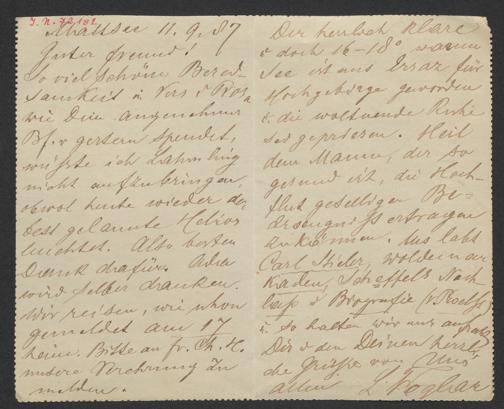 J. N. 72.182
Mattsee 11. 9. 87
Guter Freund!
So viel schöne Bered-
samkeit in Vers & Prosa
wie Dein angenehmer
Bf. v. gestern spendet,
wüsste ich
nicht aufzubringen,
obwol heute wieder der
best gelaunte Helios
leuchtet. Also besten
Dank dafür.
wird selber danken.
Wir reisen, wie schon
gemeldet am 17
heim. Bitte an Fr. Ch. H.
unsere Verehrung zu
melden.
Der herrlich klare
& doch 16-18° warme
See ist uns Ersaz für
Hochgebirge geworden
& die woltuende Ruhe
sei gepriesen. Heil
dem Manne, der so
gesund ist, die Hoch-
flut geselligen Be-
drängnisses ertragen
zu können. Uns labt
Carl Stieler,
Scheffels Nach
lass & Biografie
u. so halten wir uns
Dir & den Deinen herzli-
che Grüsse von Uns
allen